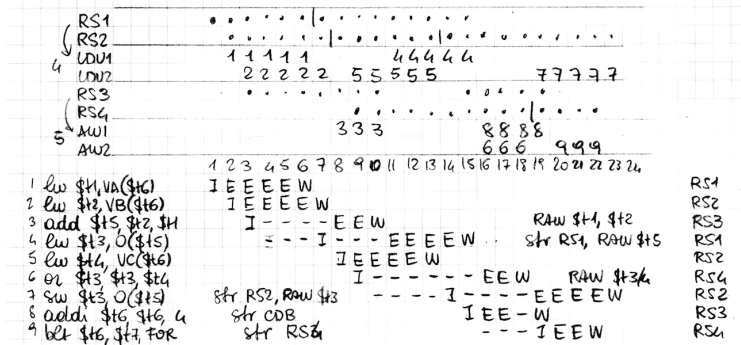 RS1
RS2
4 LDU1 1 1 1 1 1 4 4 4 4 4
LDU2 2 2 2 2 2 5 5 5 5 5 7 7 7 7 7
RS3
RS4
5 ALU1 3 3 3 8 8 8 8
ALU2 6 6 6 9 9 9
1 2 3 4 5 6 7 8 9 10 11 12 13 14 15 16 17 18 19 20 21 22 23 24
1 lw $t1, VA($t6) I E E E E W RS1
2 lw $t2, VB($t6) I E E E E W RS2
3 add $t5, $t2, $t1 I - - - - E E W RAW $t1, $t2 RS3
4 lw $t3, 0($t5) - - - I - - - E E E E W str RS1, RAW $t5 RS1
5 lw $t4, VC($t6) I E E E E W RS2
6 or $t3, $t3, $t4 I - - - - - - E E W RAW $t3/4 RS4
7 sw $t3, 0($t5) str RS2, RAW $t3 - - - - I - - - - E E E E W RS2
8 addi $t6, $t6, 4 str CDB I E E - W RS3
9 blt $t6, $t7, FOR str RS4 - - - I E E W RS4